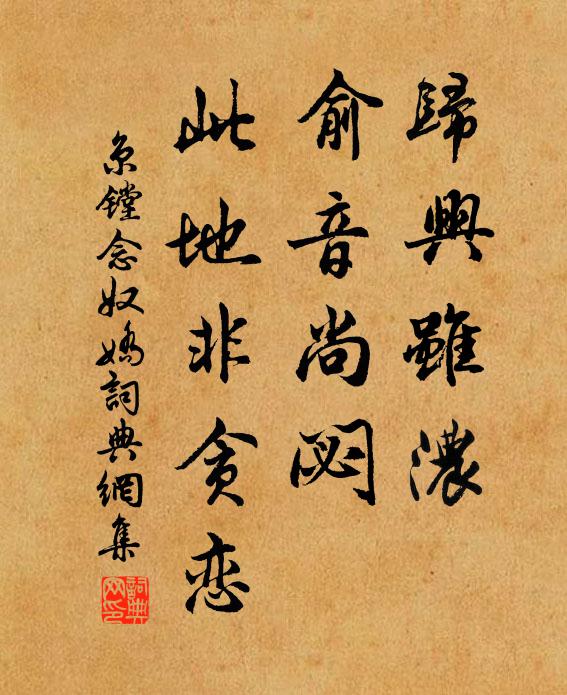 歸興雖濃
俞音尚閟
此地非贪恋
京镗念奴嬌詞典網集
詞典
网印